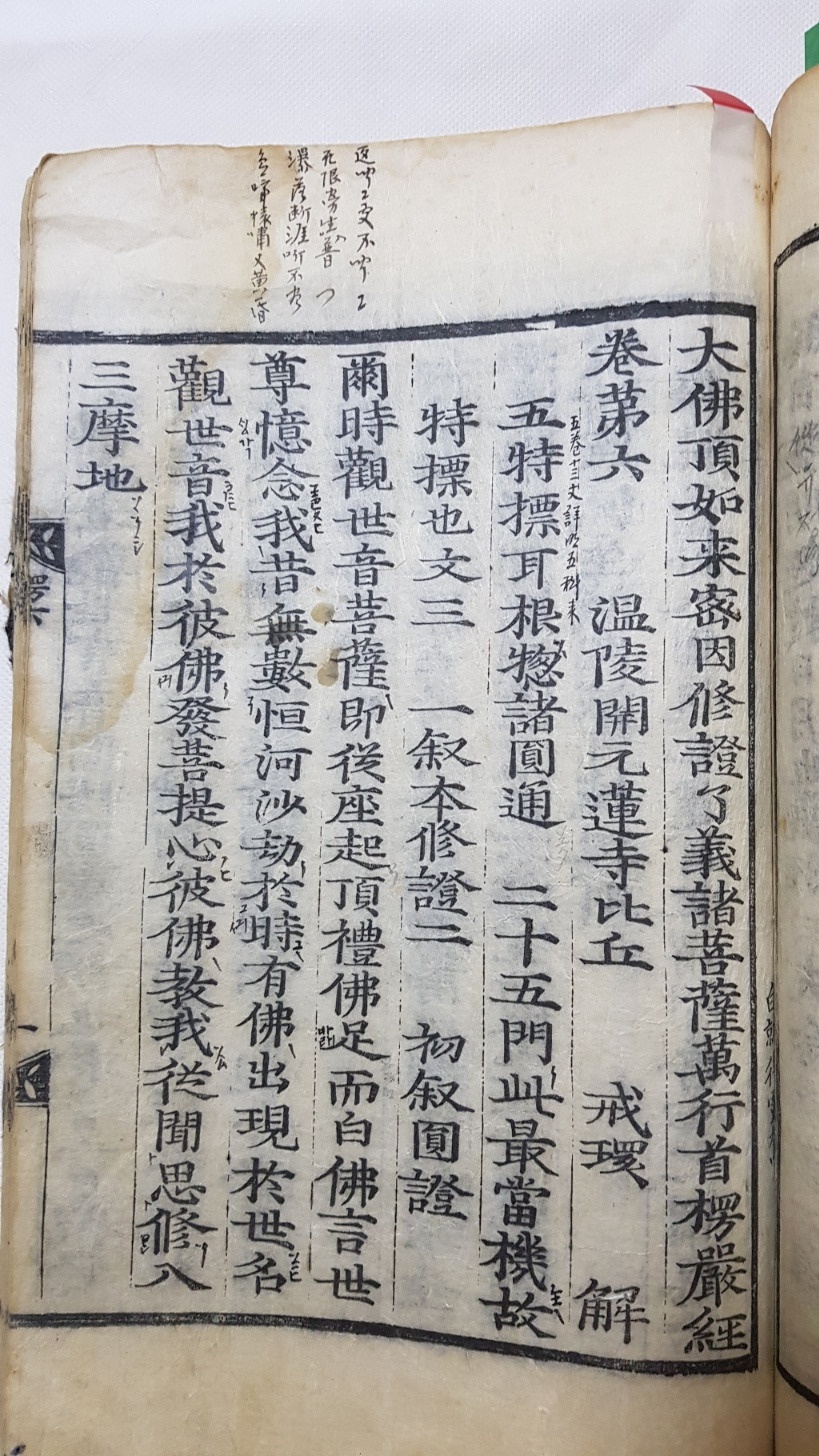 大佛頂如来宻因修證了義諸菩薩萬行首楞嚴經
卷苐六 温陵開元蓮寺比丘 戒環 解
五特摽耳根揔諸圓通 二十五門此最當機故
特摽也文三 一叙本修證二 初叙圓證
爾時觀世音菩薩即從座起頂禮佛足而白佛言世
尊憶念我昔無數恒河沙劫於時有佛出現於世名
觀世音我於彼佛發菩提心彼佛教我從聞思修入
三摩地
楞六
一